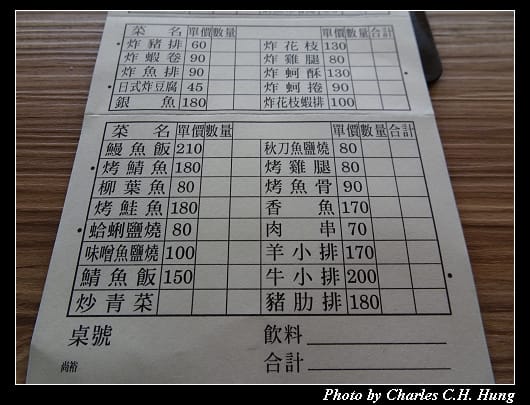 菜名 單價 數量 單價 數量 合計
炸豬排 60 炸花枝 130
炸蝦卷 90 炸雞腿 80
炸魚排 90 炸蚵酥 130
日式炸豆腐 45 炸蚵捲 90
銀魚 180 炸花枝蝦排 100
菜名 單價 數量 單價 數量 合計
鰻魚飯 210 秋刀魚鹽燒 80
烤鯖魚 180 烤雞腿 80
柳葉魚 80 烤魚骨 90
烤鮭魚 180 香魚 170
蛤蜊鹽燒 80 肉串 70
味噌魚鹽燒 100 羊小排 170
鯖魚飯 150 牛小排 200
炒青菜 豬肋排 180
桌號 飲料
尚裕 合計
Photo by Charles C.H. Hung